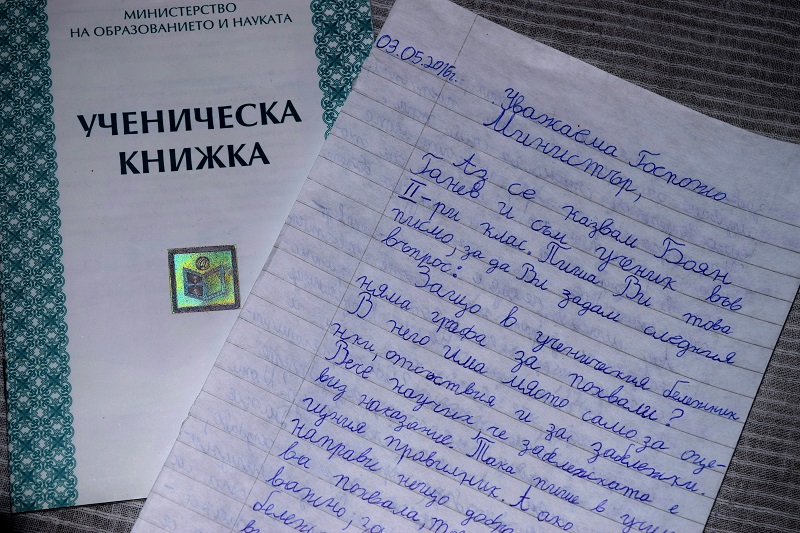 МИНИСТЕРСТВО
НА ОБРАЗОВАНИЕТО И НАУКАТА
УЧЕНИЧЕСКА
КНИЖКА
03.05.2016г.
Уважаема Госпожо
Министър,
Аз се казвам Боян
Ганев и съм ученик във
II-ри клас. Пиша Ви това
писмо, за да Ви задам следния
въпрос:
Защо в ученическия бележник
няма графа за похвали?
В него има място само за оце-
нки, отсъствия и за забележки.
Вече научих, че забележката е
вид наказание. Така пише в учили
щния правилник. А ако
направи нещо добро
ва похвала,
важно, за